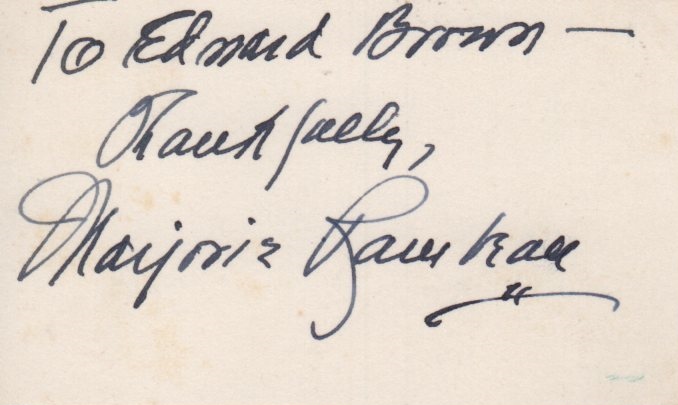 To Edward Brown —
Thankfully,
Marjorie Rambeau